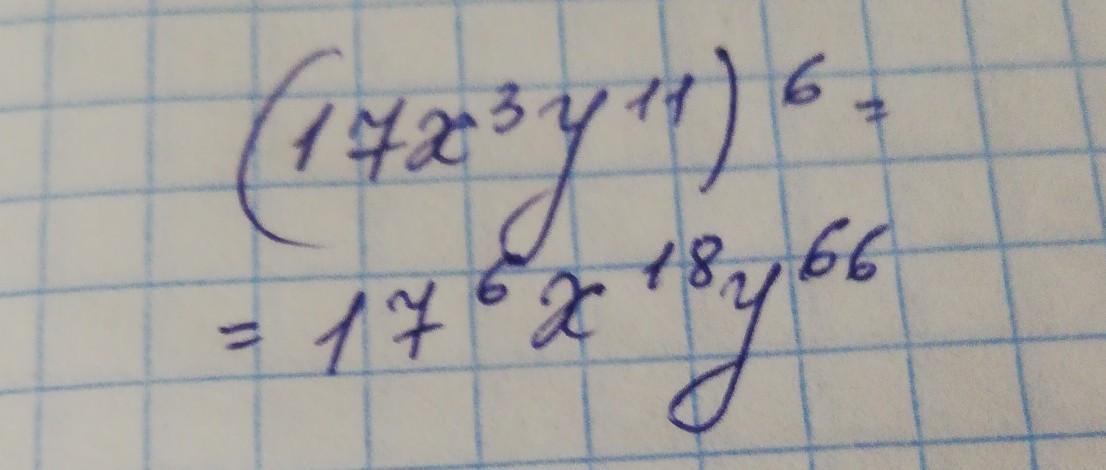 (17x³y¹¹)⁶ =
= 17⁶x¹⁸y⁶⁶